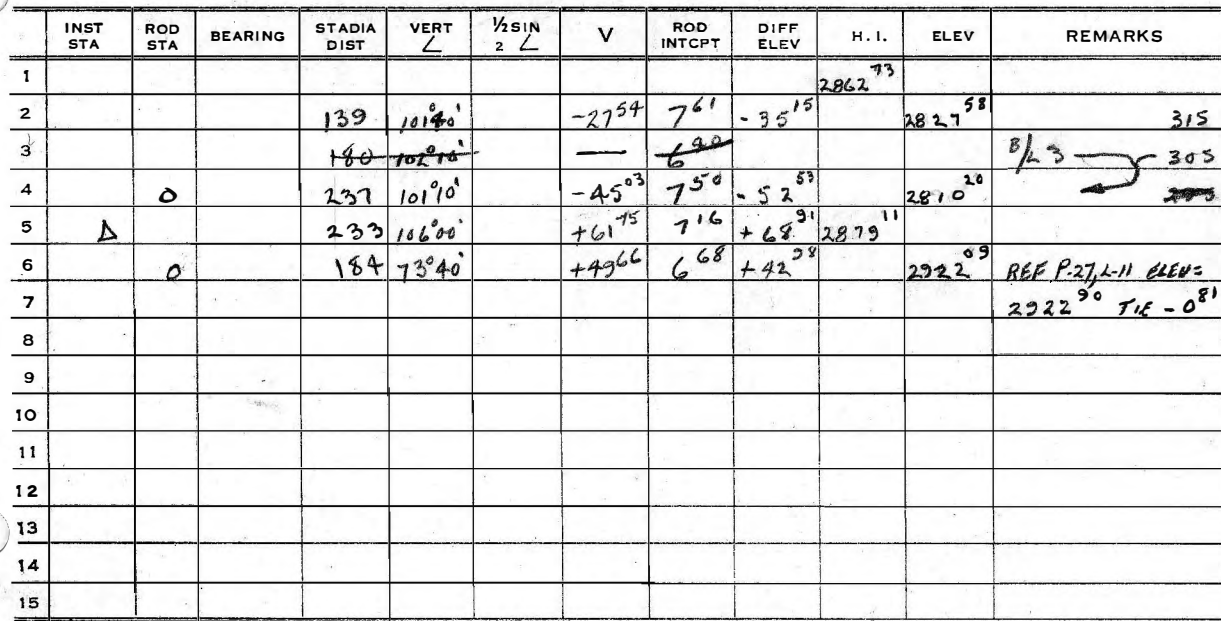 INST STA ROD STA BEARING STADIA DIST VERT ∠ ½ SIN 2 ∠ V ROD INTCPT DIFF ELEV H. I. ELEV REMARKS
1 2862⁷³
2 139 101°40' -27⁵⁴ 7⁶¹ -35¹⁵ 2827⁵⁸ 315
3 180 102°10' — 6⁹⁰ B/L 3 305
4 O 237 101°10' -45⁰³ 7⁵⁰ -52⁵³ 2810²⁰
5 Δ 233 106°00' +61⁷⁵ 7¹⁶ +68⁹¹ 2879¹¹
6 O 184 73°40' +49⁶⁶ 6⁶⁸ +42⁹⁸ 2922⁰⁹ REF P-27, L-11 ELEV=
7 2922⁹⁰ TIE -0⁸¹
8
9
10
11
12
13
14
15